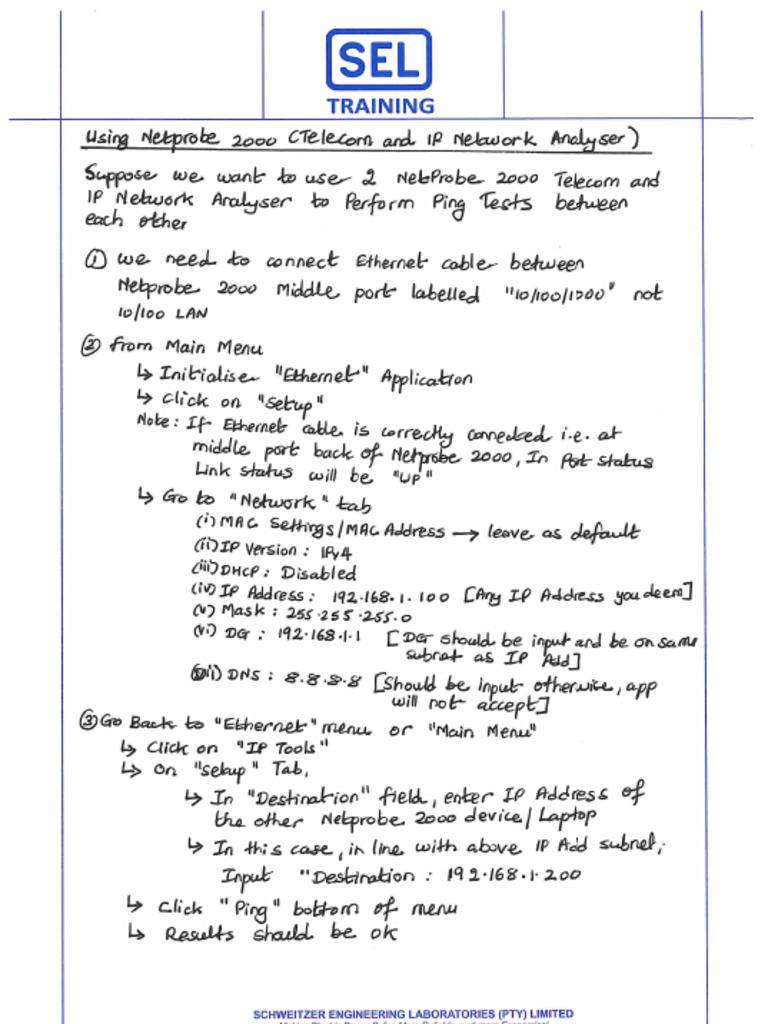 SEL
TRAINING
Using Netprobe 2000 (Telecom and IP Network Analyser)
Suppose we want to use 2 NetProbe 2000 Telecom and
IP Network Analyser to Perform Ping Tests between
each other
① we need to connect Ethernet cable between
Netprobe 2000 Middle port labelled "10/100/1000" not
10/100 LAN
② From Main Menu
↳ Initialise "Ethernet" Application
↳ Click on "Setup"
Note: If Ethernet cable is correctly connected i.e. at
middle port back of Netprobe 2000, In Port status
Link status will be "UP"
↳ Go to "Network" tab
(i) MAC Settings/MAC Address → leave as default
(ii) IP Version: IPv4
(iii) DHCP: Disabled
(iv) IP Address: 192.168.1.100 [Any IP Address you deem]
(v) Mask: 255.255.255.0
(vi) DG: 192.168.1.1 [DG should be input and be on same
subnet as IP Add]
(vii) DNS: 8.8.8.8 [Should be input otherwise, app
will not accept]
③ Go Back to "Ethernet" menu or "Main Menu"
↳ Click on "IP Tools"
↳ On "Setup" Tab,
↳ In "Destination" field, enter IP Address of
the other Netprobe 2000 device/Laptop
↳ In this case, in line with above IP Add subnet,
Input "Destination: 192.168.1.200
↳ Click "Ping" bottom of menu
↳ Results should be ok
SCHWEITZER ENGINEERING LABORATORIES (PTY) LIMITED